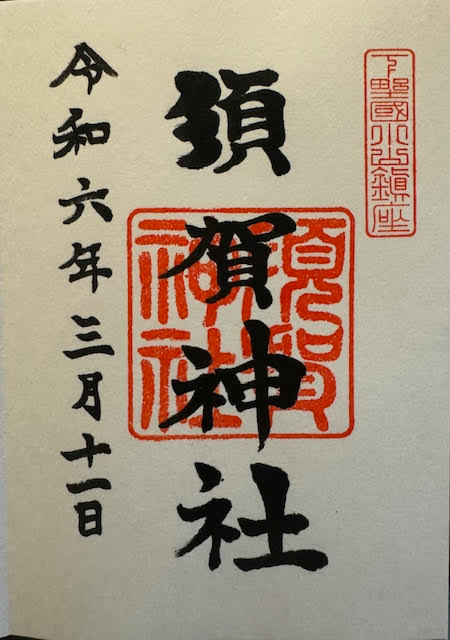 下野國小山鎮座
須賀神社
須賀神社
令和六年三月十一日